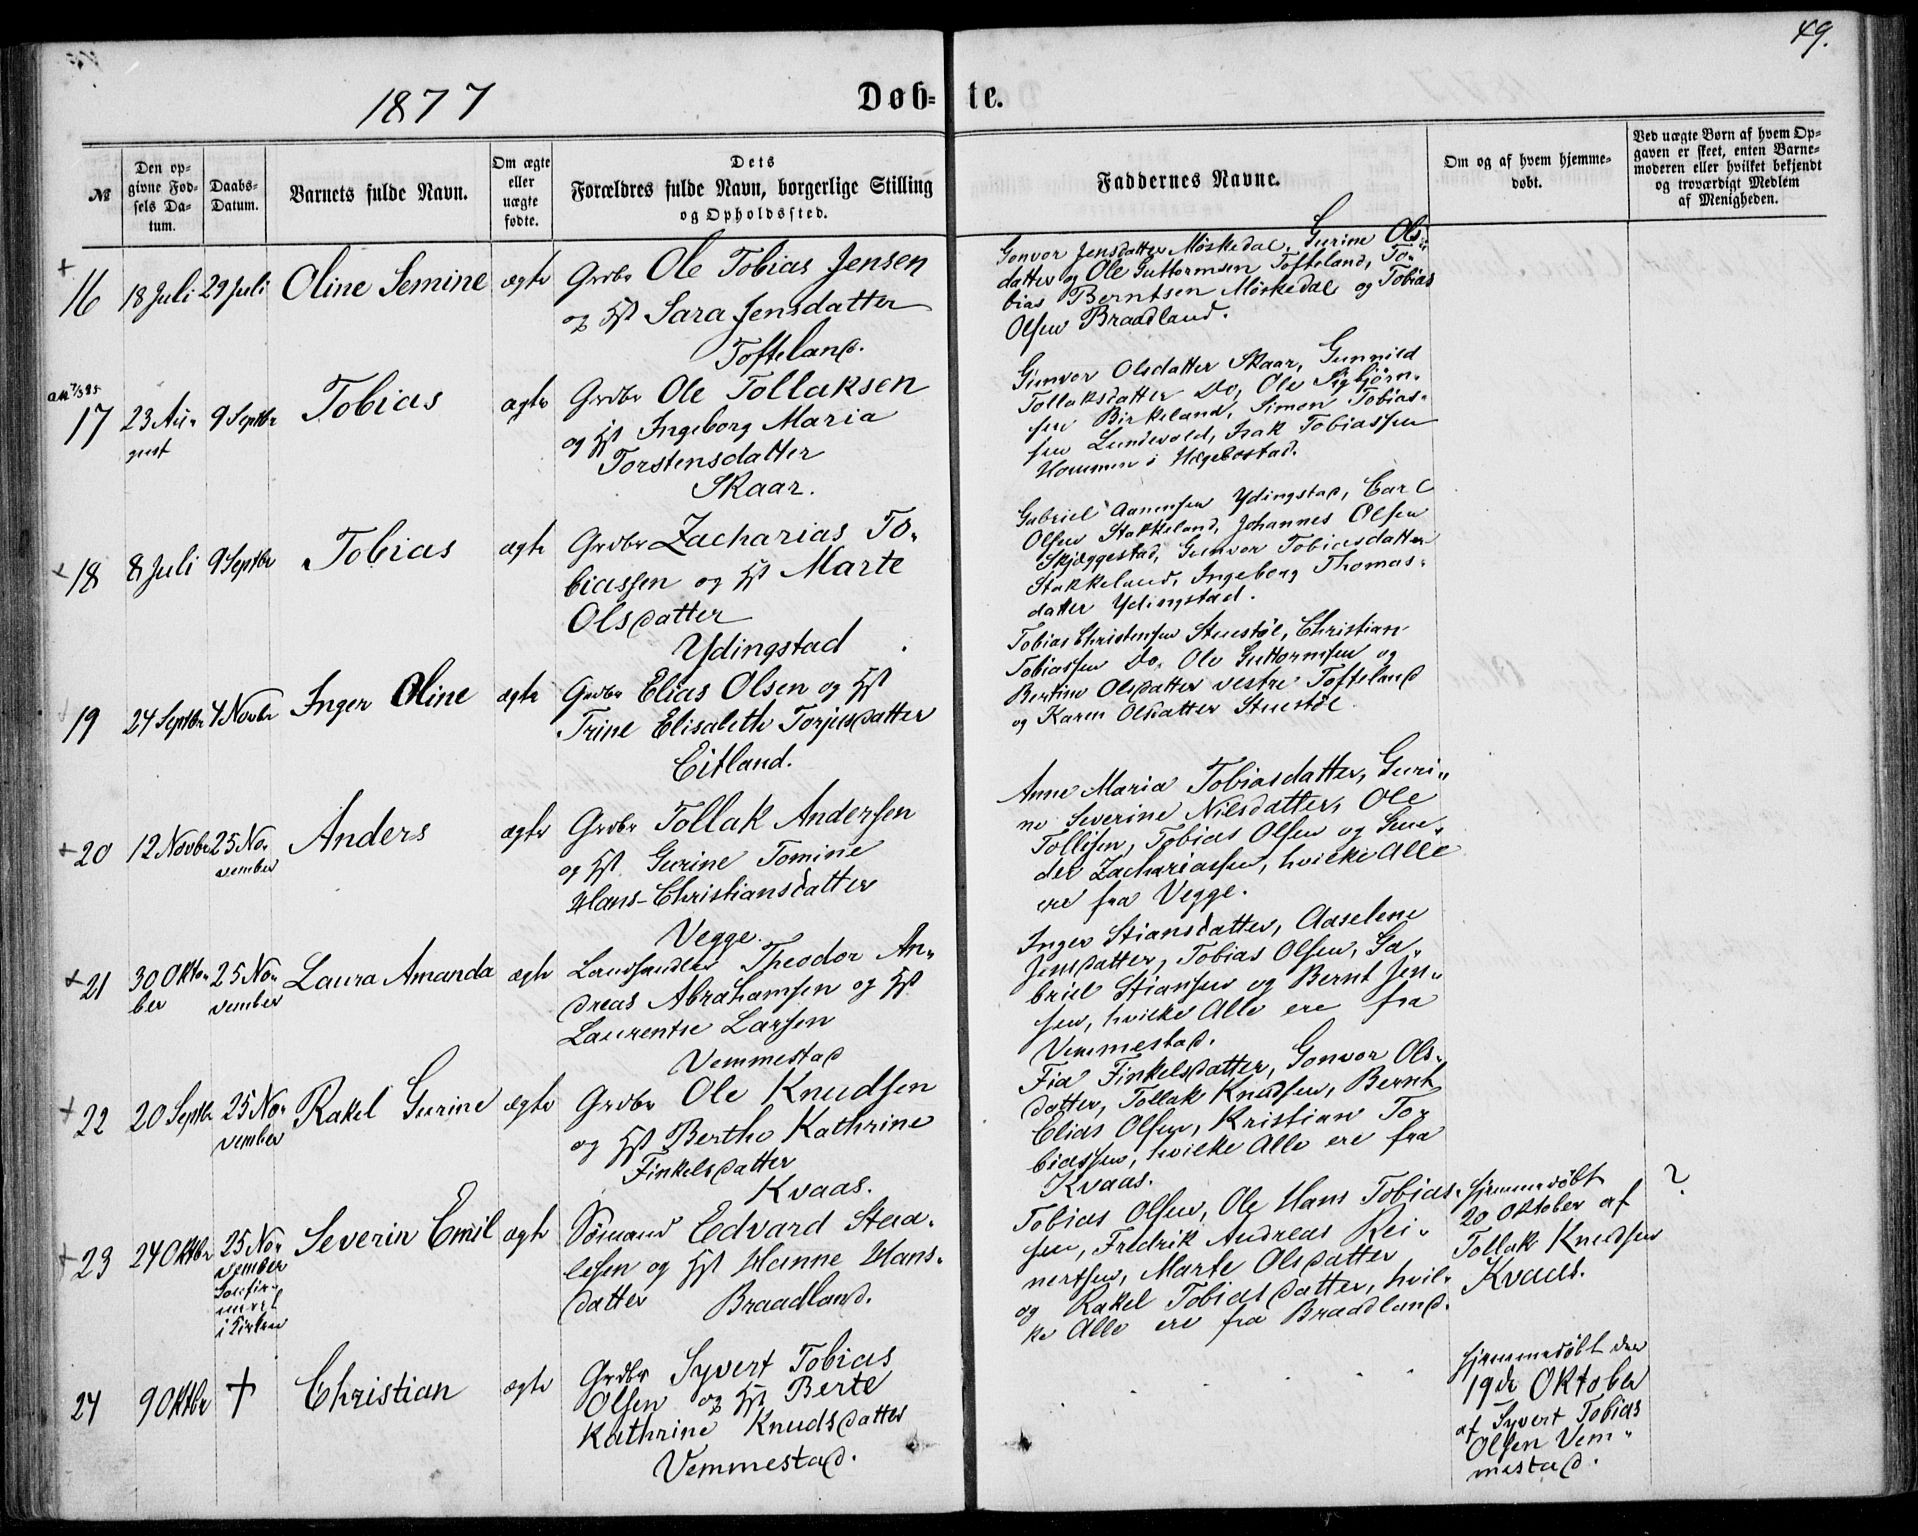 49.
1877
Døb=te.
№
Den op=
givne Fød=
sels Da=
tum.
Daabs=
Datum.
Barnets fulde Navn.
Om ægte
eller
uægte
fødte.
Dets
Forældres fulde Navn, borgerlige Stilling
og Opholdssted.
Faddernes Navne.
Om og af hvem hjemme=
døbt.
Ved uægte Børn af hvem Op=
gaven er skeet, enten Barne=
moderen eller hvilket bekjendt
og troværdigt Medlem
af Menigheden.
+
16
18 Juli
29 Juli
Oline Semine
ægte
Grdbr Ole Tobias Jensen
og Hst Sara Jensdatter
Tofteland.
Gonvor Jensdatter Møskedal, Gurine Ols-
datter og Ole Guttormsen Tofteland, To-
bias Berntsen Møskedal og Tobias
Olsen Braadland.
17
23 Au-
gust
9 Septbr
Tobias
ægte
Grdbr Ole Tollaksen
og Hst Ingeborg Maria
Torstensdatter
Skaar.
Gunvor Olsdatter Skaar, Gunnild
Tollaksdatter Do, Ole Sigbjørn-
sen Birkeland, Simon Tobias-
sen Lundevold, Isak Tobiassen
Hommen i Hægebostad.
+
18
8 Juli
9 Septbr
Tobias
ægte
Grdbr Zacharias To-
biassen og Hst Marte
Olsdatter
Ydingstad
Gabriel Aanensen Ydingstad, Carl
Olsen Stakkeland, Johannes Olsen
Skjeggestad, Gunvor Tobiasdatter
Stakkeland, Ingeborg Thomas-
datter Ydingstad.
19
24 Septbr
4 Novbr
Inger Oline
ægte
Grdbr Elias Olsen og Hst
Trine Elisabeth Torjusdatter
Eitland.
Tobias Christensen Stuestøl, Christian
Tobiassen Do, Ole Guttormsen og
Bertine Olsdatter vestre Tofteland
og Karen Olsdatter Stuestøl
+
20
12 Novbr
25 No-
vember
Anders
ægte
Grdbr Tollak Andersen
og Hst Gurine Tomine
Hans-Christiansdatter
Vegge.
Anne Maria Tobiasdatter, Guri-
ne Severine Nilsdatter, Ole
Tollisen, Tobias Olsen og Gun-
der Zachariassen, hvilke Alle
ere fra Vegge.
+
21
30 Okto-
ber
25 No-
vember
Laura Amanda
ægte
Landhandler Theodor An-
dreas Abrahamsen og Hst
Laurentse Larsen
Vemmestad
Inger Stiansdatter, Aaselene
Jensdatter, Tobias Olsen, Ga-
briel Stiansen og Bernt Jen-
sen, hvilke Alle ere fra
Vemmestad.
+
22
20 Septbr
25 No-
vember
Rakel Gurine
ægte
Grdbr Ole Knudsen
og Hst Berthe Kathrine
Finkelsdatter
Kvaas.
Fia Finkelsdatter, Gonvor Ols-
datter, Tollak Knudsen, Bernt
Elias Olsen, Kristian To-
biassen, hvilke Alle ere fra
Kvaas.
+
23
24 Oktbr
25 No-
vember
i Kirken
Severin Emil
ægte
Sømand Edvard Staa-
lesen og Hst Hanne Hans-
datter Braadland.
Tobias Olsen, Ole Hans Tobias-
sen, Fredrik Andreas Rei-
nertsen, Marte Olsdatter
og Rakel Tobiasdatter, hvil-
ke Alle ere fra Braadland.
hjemmedøbt
20 Oktober af
Tollak Knudsen
Kvaas.
?
24
9 Oktbr
+
Christian
ægte
Grdbr Syvert Tobias
Olsen og Hst Berte
Kathrine Knudsdatter
Vemmestad.
hjemmedøbt den
19de Oktober
af Syvert Tobias
Olsen Vem-
mestad.